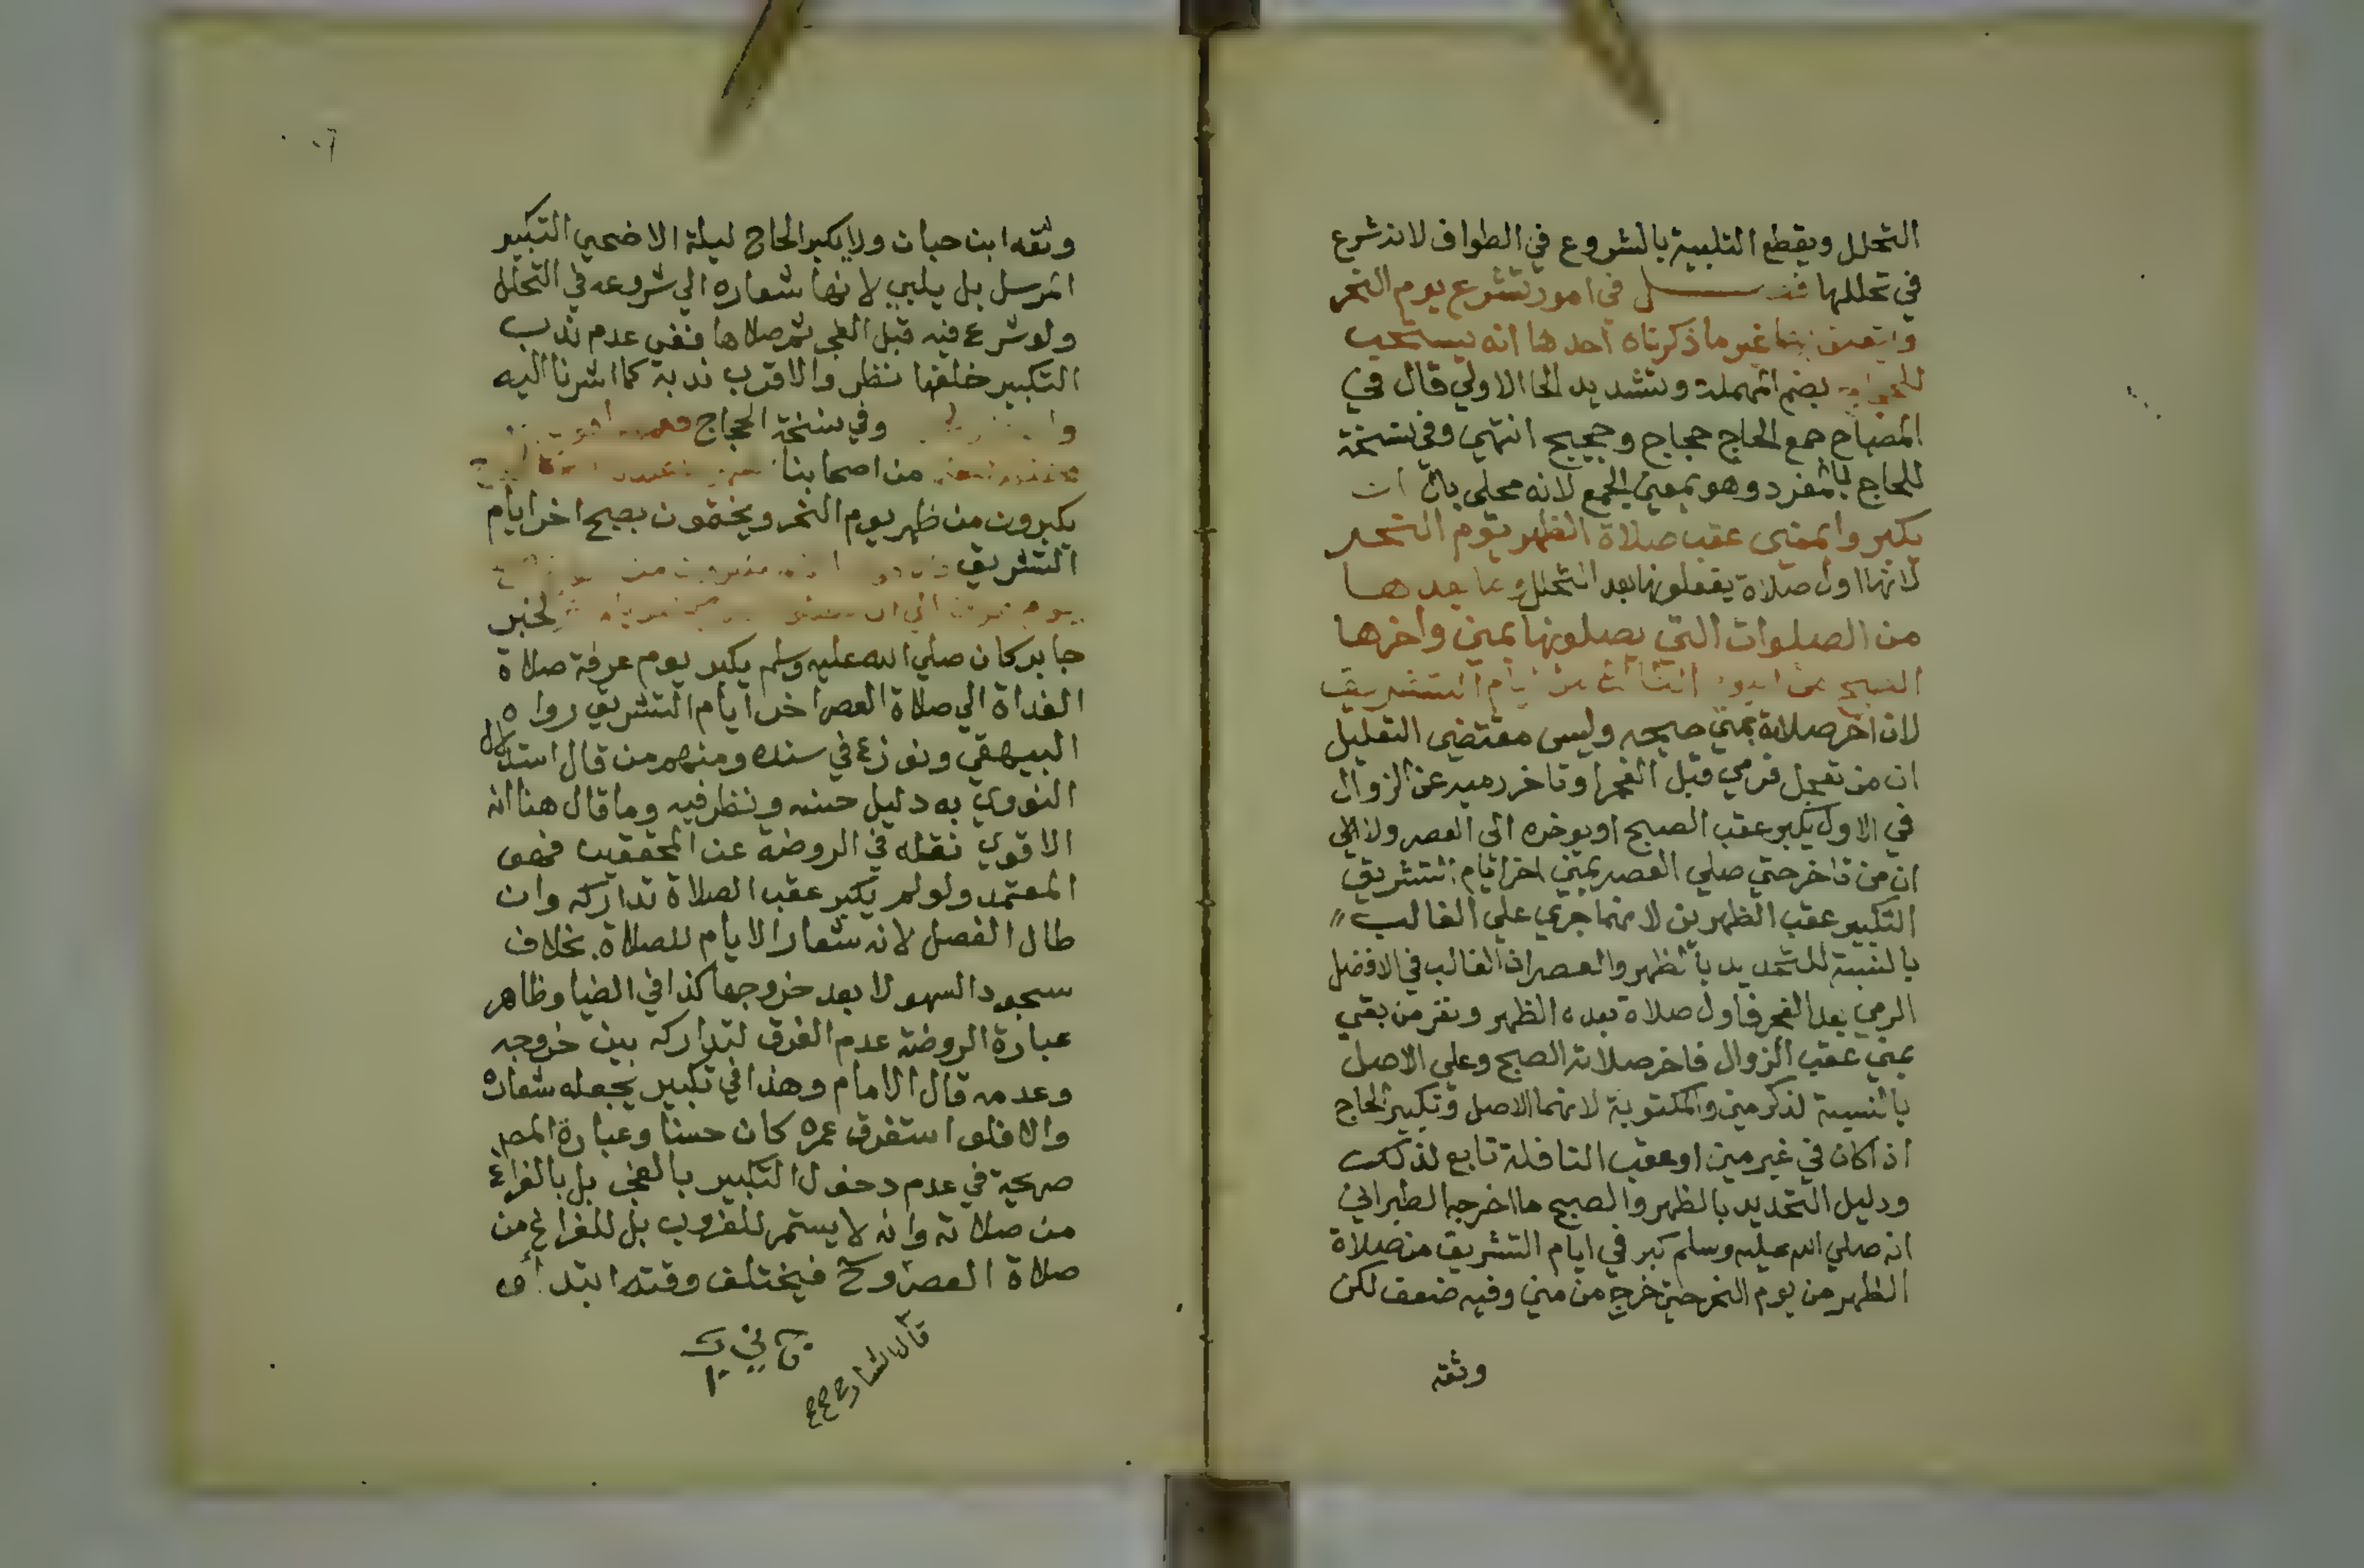 التحلل ويقطع التلبية بالشروع في الطواف لانه شرع
في تحللها فصل في امور تشرع يوم النحر
غير ما ذكرناه احدها انه يستحب
بضم المهملة وتشديد الحا الاولي قال في
المصباح جمع الحاج حجاج وحجيج انتهي وفي نسخة
للحاج بالمفرد وهو بمعني الجمع لانه محلي بال ان
يكبروا بمني عقب صلاة الظهر يوم النحر
لانها اول صلاة يفعلونها بعد التحلل وما بعدها
من الصلوات التي يصلونها بمني واخرها
الصبح من اليوم الثالث من ايام التشريق
لان اخر صلاة بمني صبحه وليس مقتضي التعليل
ان من تعجل فرمي قبل الفجر او تاخر رميه عن الزوال
في الاول يكبر عقب الصبح او يوخره الى العصر ولا في
ان من تاخر حتي صلي العصر بمني اخر ايام التشريق
التكبير عقب الظهرين لانهما جري علي الغالب
بالنسبة للتحديد بالظهر والعصر اذ الغالب في الافضل
الرمي بعد الفجر فاول صلاة بعده الظهر ونفر من بقي
بمني عقب الزوال فاخر صلاته الصبح وعلي الاصل
بالنسبة لذكر مني والمكتوبة لانهما الاصل وتكبير الحاج
اذا كان في غير مني او عقب النافلة تابع لذلك
ودليل التحديد بالظهر والصبح ما اخرجه الطبراني
انه صلي الله عليه وسلم كبر في ايام التشريق من صلاة
الظهر من يوم النحر حتي خرج من مني وفيه ضعف لكن
وثقه
وثقه ابن حبان ولا يكبر الحاج ليلة الاضحي التكبير
المرسل بل يلبي لانها شعاره الي شروعه في التحلل
ولو شرع فيه قبل الفجر ثم صلاها ففي عدم ندب
التكبير خلفها نظر والاقرب ندبه كما اشرنا اليه
وفي نسخة الحجاج
من اصحابنا
يكبرون من ظهر يوم النحر ويختمون بصبح اخر ايام
التشريق
لخبر
جابر كان صلي الله عليه وسلم يكبر يوم عرفة صلاة
الغداة الي صلاة العصر اخر ايام التشريق رواه
البيهقي ونوزع في سنده ومنهم من قال استدلال
النووي به دليل حسنه ونظر فيه وما قال هنا انه
الاقوي نقله في الروضة عن المحققين فهو
المعتمد ولو لم يكبر عقب الصلاة تداركه وان
طال الفصل لانه شعار الايام للصلاة بخلاف
سجود السهو لا بعد خروجها كذا في الضيا وظاهر
عبارة الروضة عدم الفرق لتداركه بين خروجه
وعدمه قال الامام وهذا في تكبير يجعله شعاره
والا فلو استغرق عمره كان حسنا وعبارة المص
صريحة في عدم دخول التكبير بالفجر بل بالفراغ
من صلاته وانه لا يستمر للغروب بل للفراغ من
صلاة العصر وح فيختلف وقته ابتداء
قال الشارح